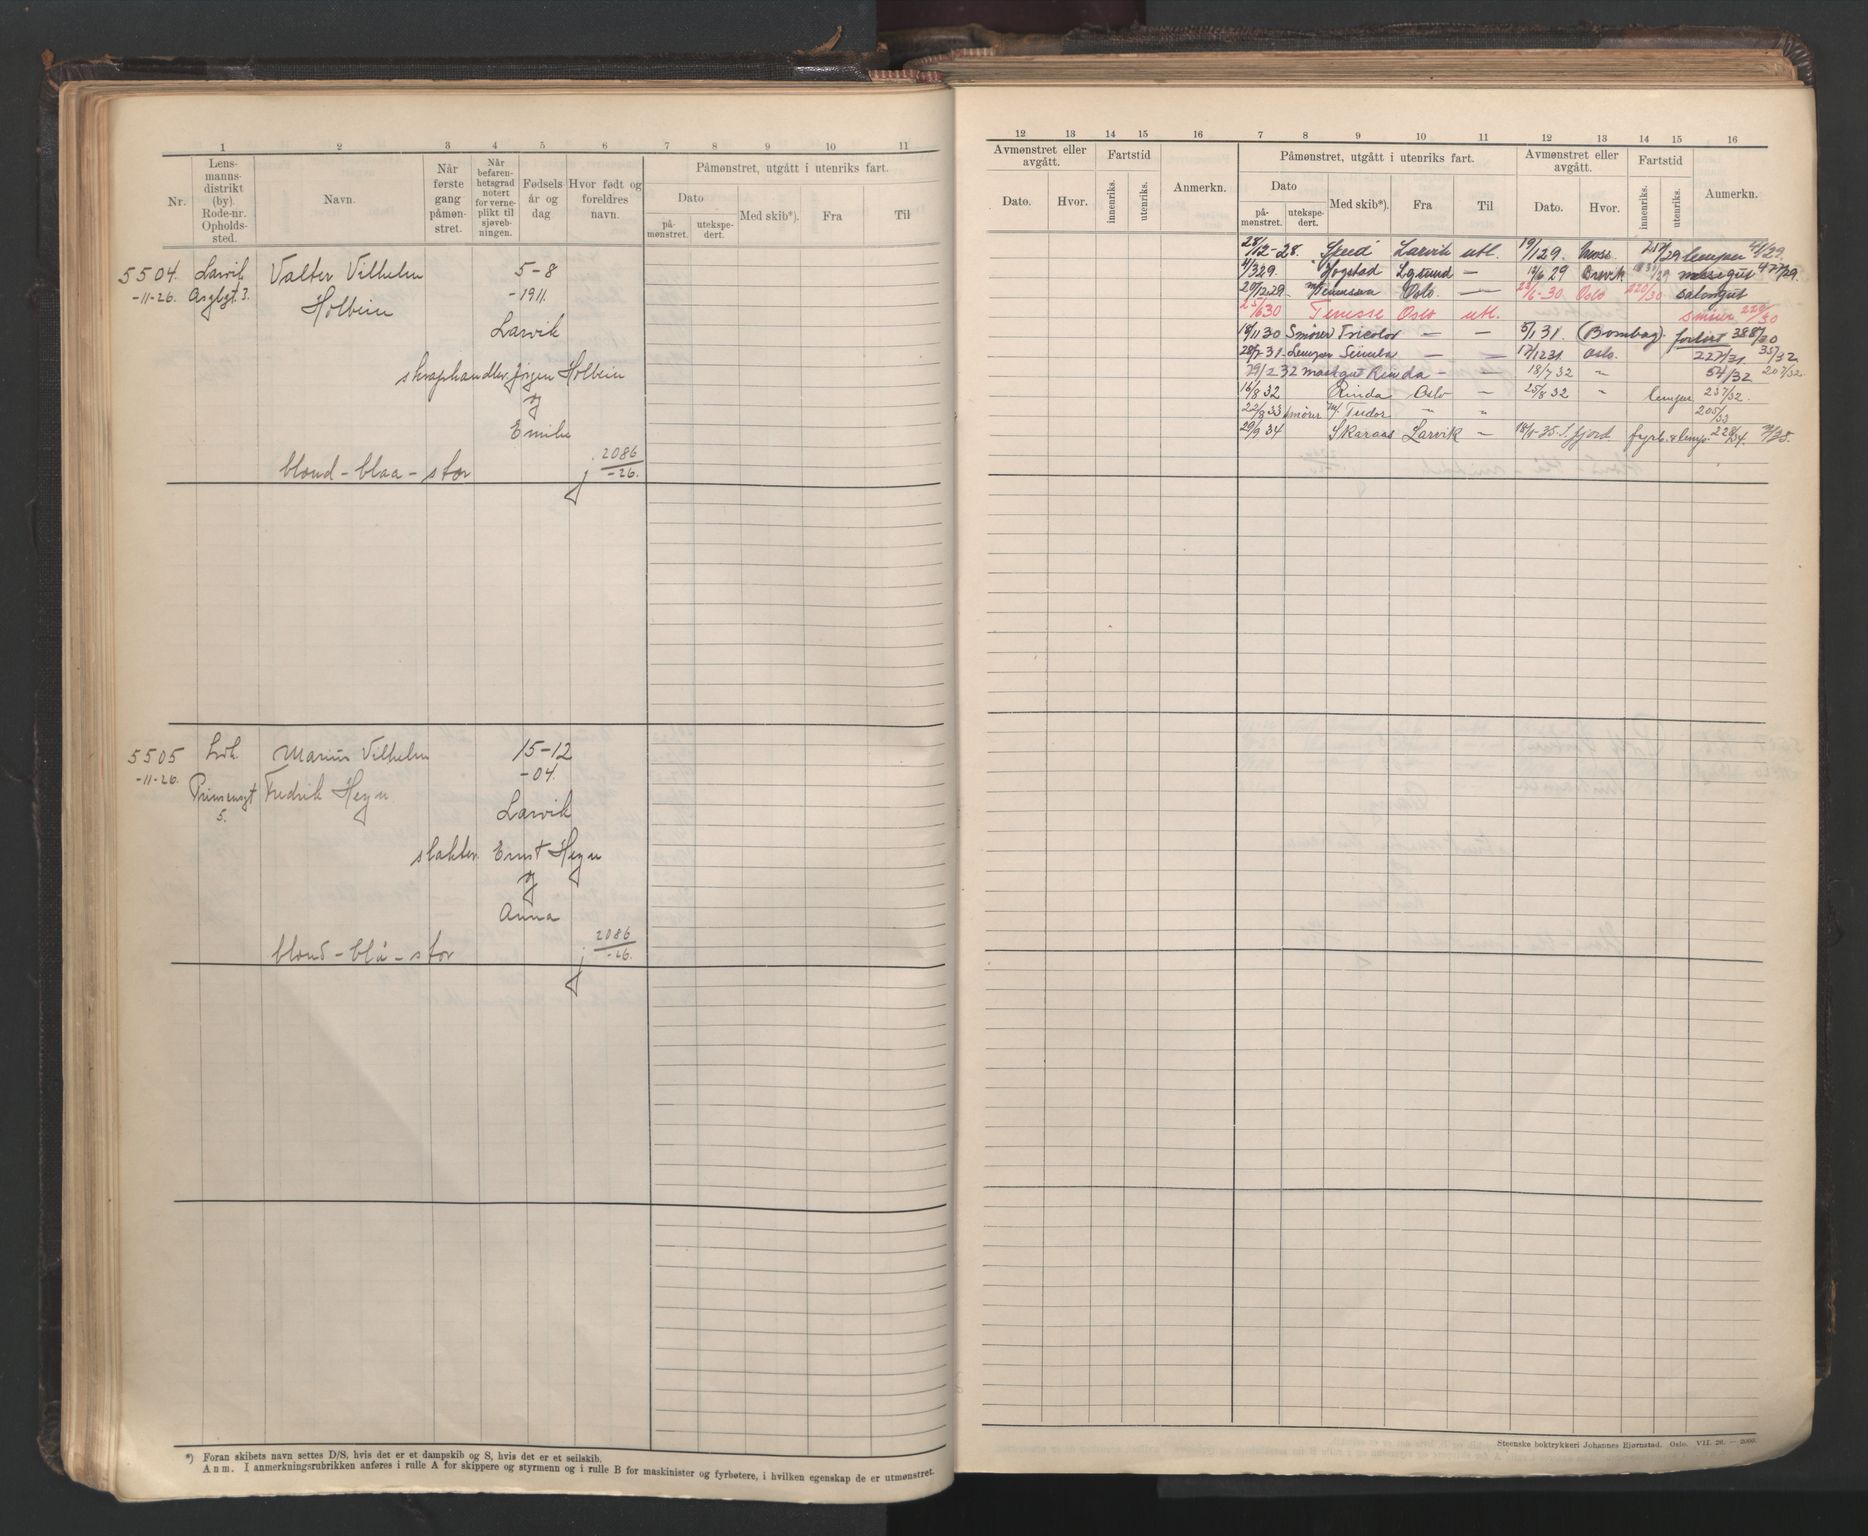 1 2 3 4 5 6 7 8 9 10 11
Nr. Lensmannsdistrikt (by). Rode-nr. Opholdssted. Navn. Når første gang påmønstret. Når befarenhetsgrad notert for verneplikt til sjøvebningen. Fødsels år og dag Hvor født og foreldres navn.
Påmønstret, utgått i utenriks fart.
Dato påmønstret. utekspedert. Med skib*). Fra Til
5504. Larvik Valter Vilhelm 5-8
-11-26. Holbein -1911.
Larvik
skraphandler Jørgen Holbein
og
Emilie
blond - blaa - stor j 2086/-26.
5505 Lvk. Marius Vilhelm 15-12
-11-26. Prinsensgt Fredrik Heyn -04.
5. Larvik
slakter Ernst Heyn
og
Anna
blond - blå - stor j 2086/-26.
*) Foran skibets navn settes D/S, hvis det er et dampskib og S, hvis det er et seilskib.
Anm. I anmerkningsrubrikken anføres i rulle A for skippere og styrmenn og i rulle B for maskinister og fyrbøtere, i hvilken egenskap de er utmønstret.
12 13 14 15 16 7 8 9 10 11 12 13 14 15 16
Avmønstret eller avgått. Fartstid Anmerkn. Påmønstret, utgått i utenriks fart. Avmønstret eller avgått. Fartstid Anmerkn.
Dato. Hvor. innenriks. utenriks. Dato påmønstret. utekspedert. Med skib*). Fra Til Dato. Hvor. innenriks. utenriks.
28/12-28. Larvik utl. 19/1 29. Moss lemper
4/3 29. Høgstad — 12/6 29 Brevik messegut
20/12 29. Oslo. — 23/6-30 Oslo 220/30 salongut
25/6 30 Tenesse Oslo utl. smører 220/30
18/11 30 Smører Tricolor — — 5/1 31. (Bombay). forlist 388/30
Lemper Simba — — 17/12 31 Oslo. 227/31 35/32
29/2 32 Rinda — — 18/7 32 " 54/32 207/32.
16/8 32 Rinda Oslo — 25/8 32 " lemper 237/32.
22/8 33 smører M/ Tudor " " 205/33
29/9 34 Skaraas Larvik — fyrb. & lemp. 228/34.
Steenske boktrykkeri Johannes Bjørnstad. Oslo. VII. 26. — 2000.